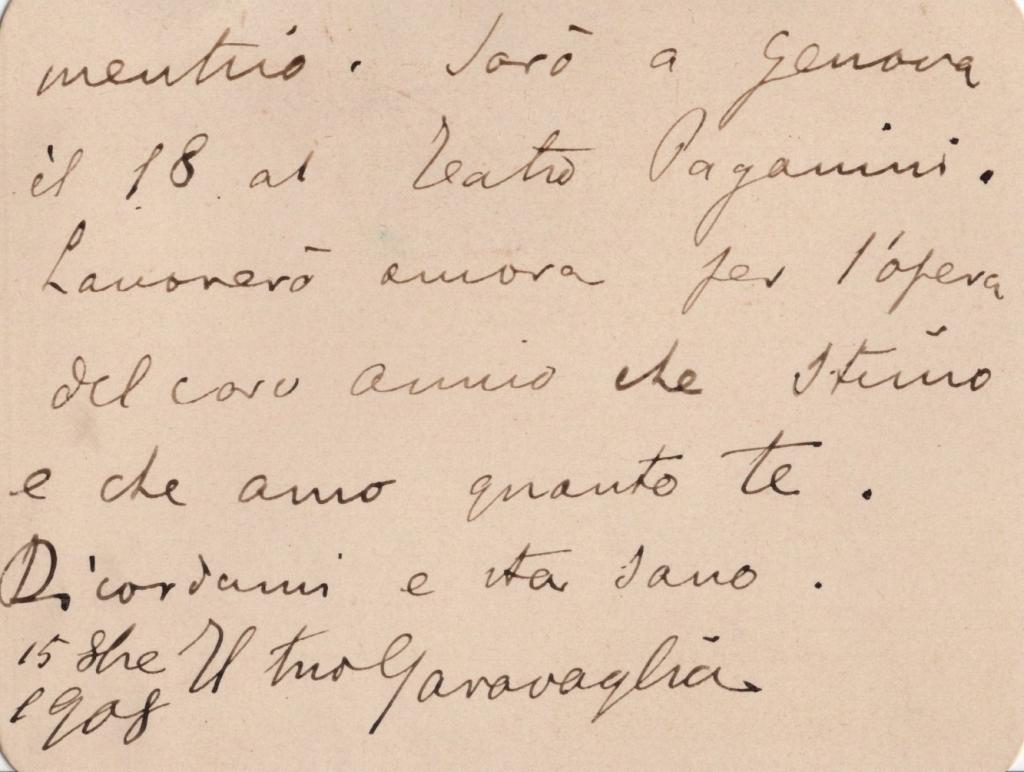 mentirò. Sarò a Genova
il 18 al Teatro Paganini.
Lavorerò ancora per l'opera
del caro amico che stimo
e che amo quanto te.
Ricordami e sta sano.
15 8bre Il tuo Garavaglia
1908